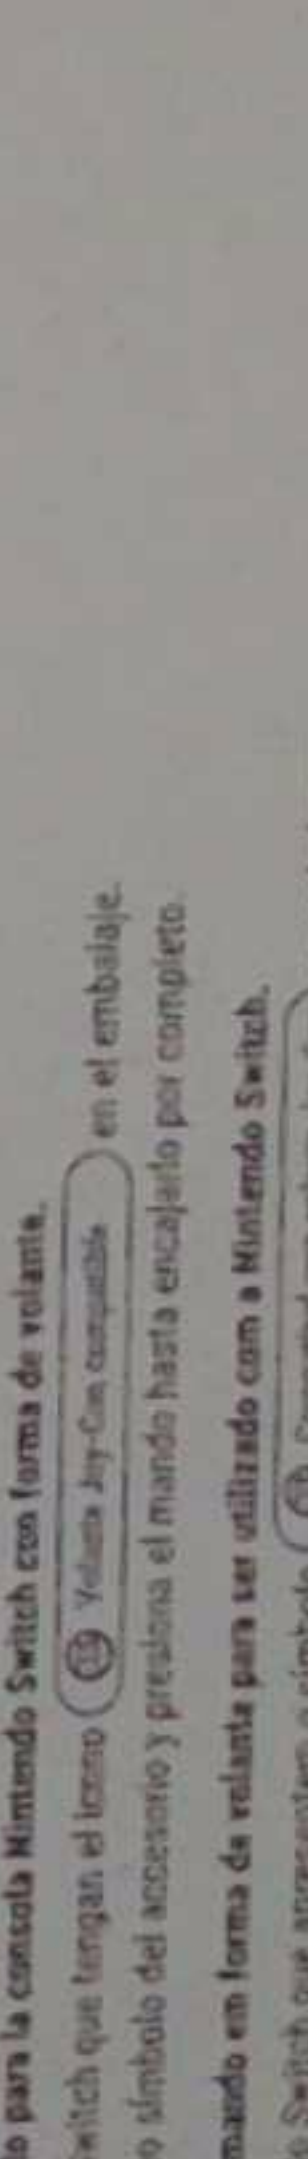 lo para la consola Nintendo Switch con forma de volante.
witch que tengan el icono Volante Joy-Con compatible en el embalaje.
o símbolo del accesorio y presiona el mando hasta encajarlo por completo.
mando em forma de volante para ser utilizado com a Nintendo Switch.
o Switch que apresentem o símbolo